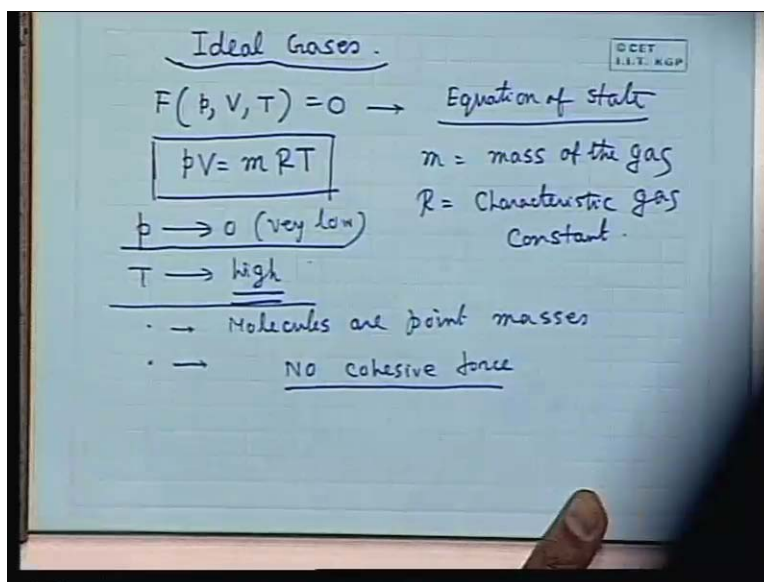 Ideal Gases.
© CET
I.I.T. KGP
F(p, V, T) = 0 → Equation of state
pV = mRT
m = mass of the gas
R = Characteristic gas
Constant.
p → 0 (very low)
T → high
· → Molecules are point masses
· → No cohesive force